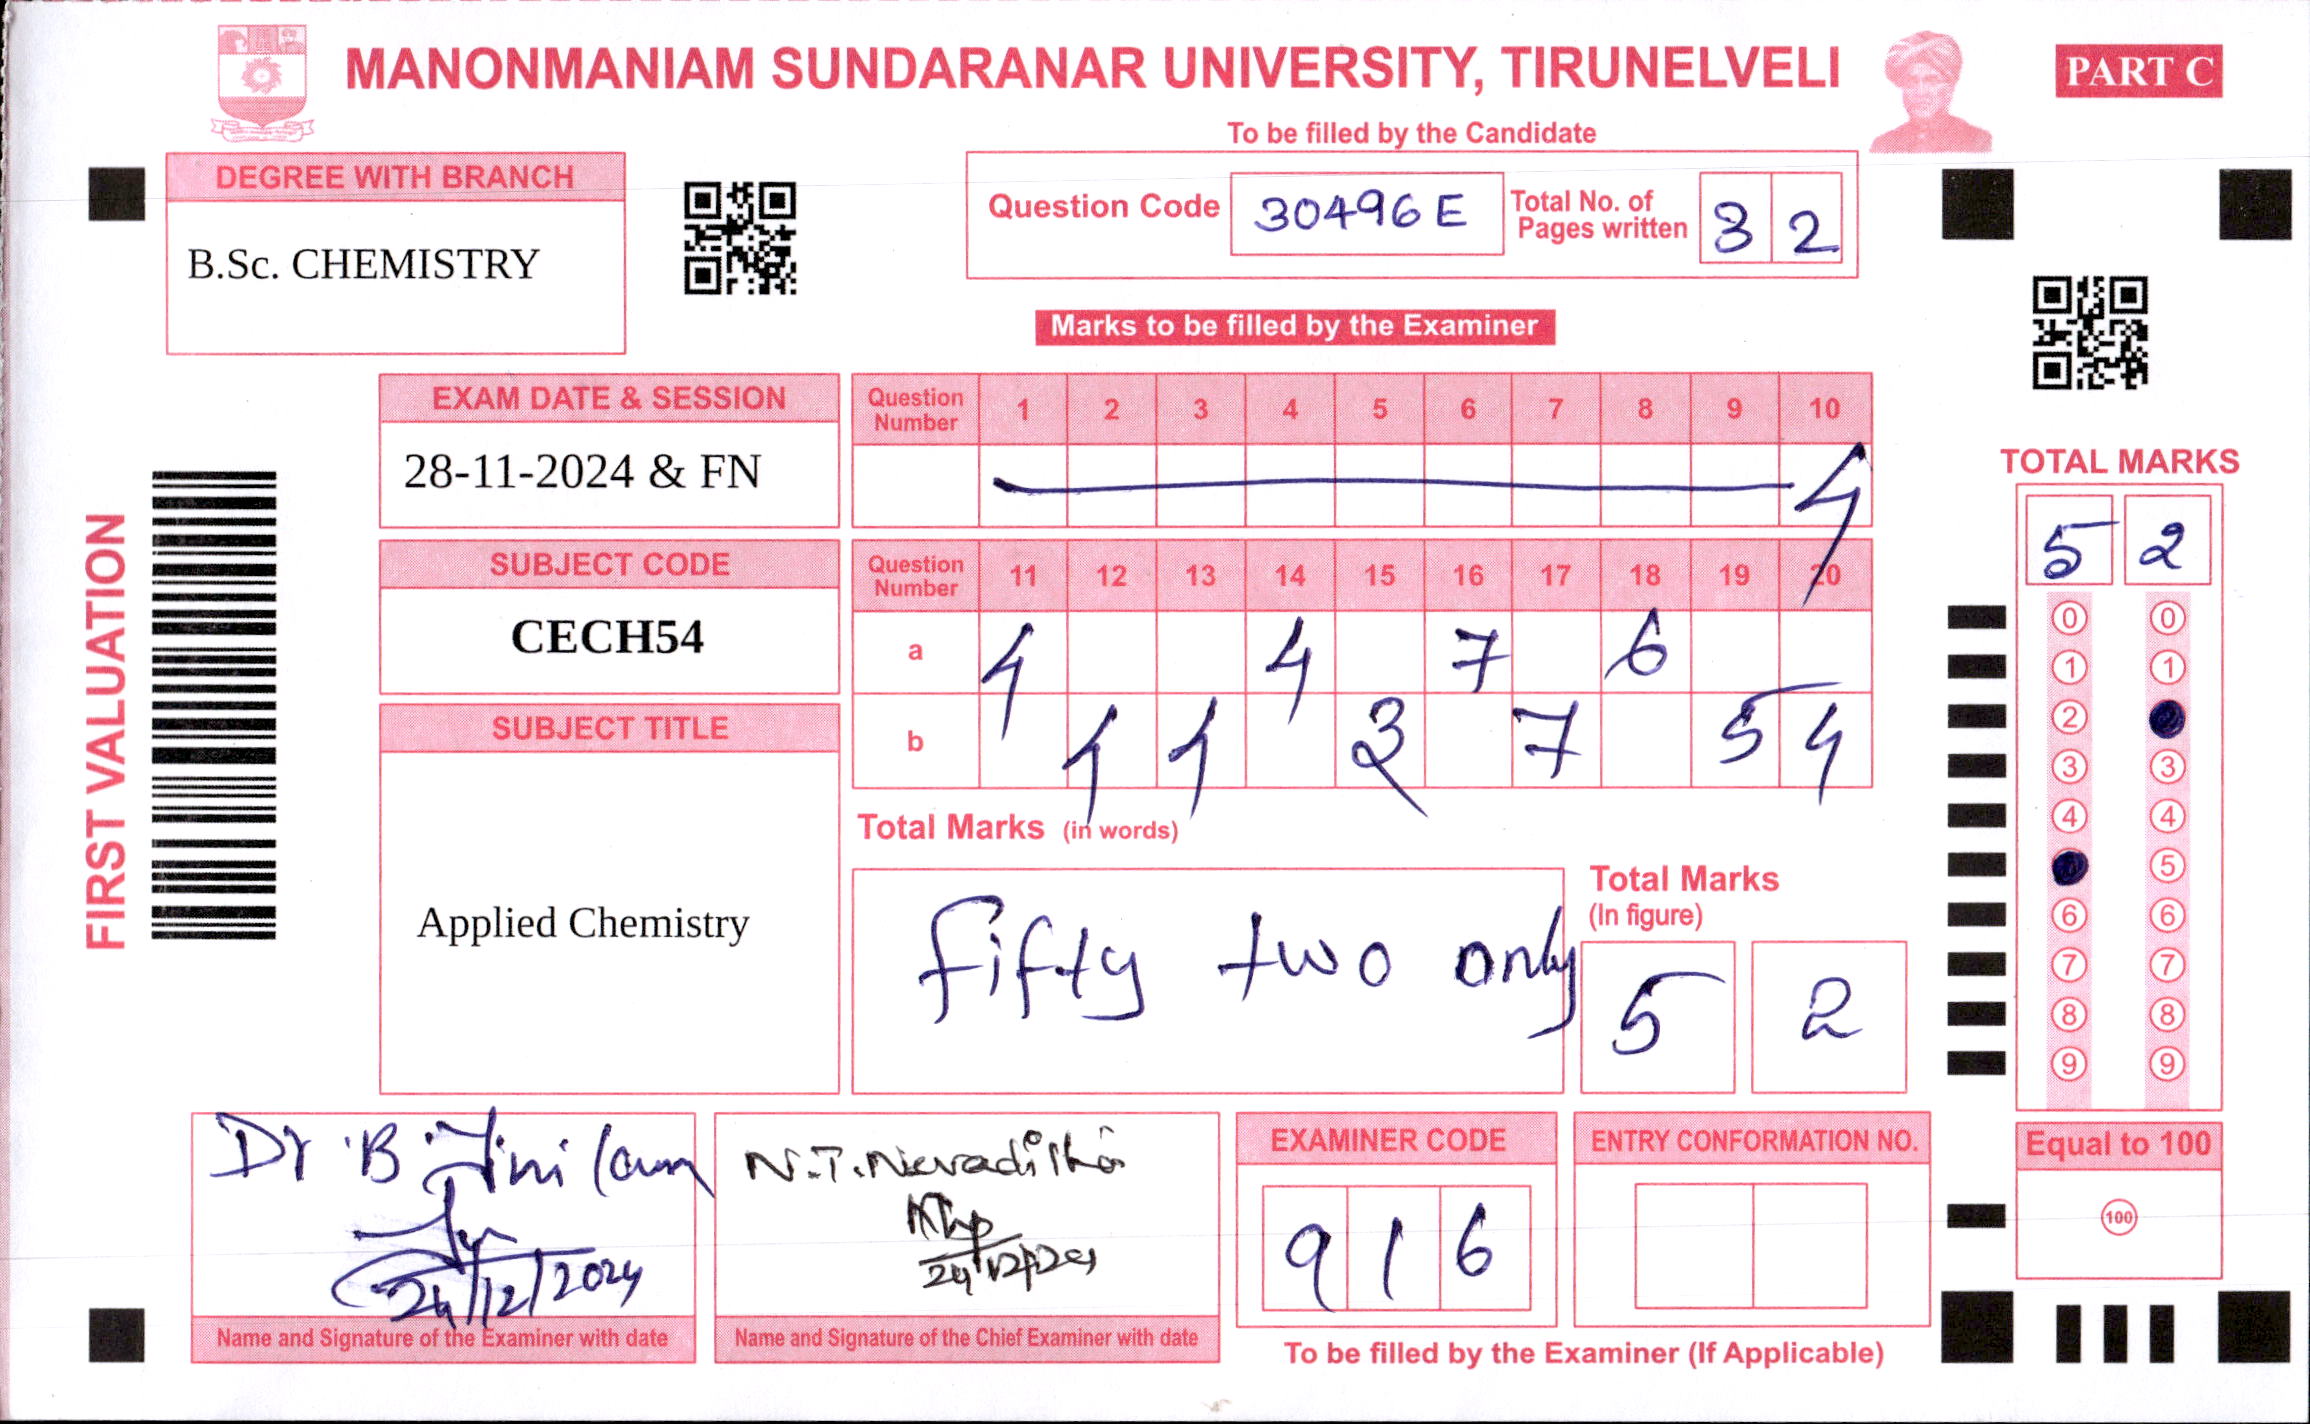 MANONMANIAM SUNDARANAR UNIVERSITY, TIRUNELVELI
PART C
To be filled by the Candidate
DEGREE WITH BRANCH
B.Sc. CHEMISTRY
Question Code 30496E
Total No. of Pages written 32
Marks to be filled by the Examiner
EXAM DATE & SESSION
28-11-2024 & FN
Question Number 1 2 3 4 5 6 7 8 9 10
4
SUBJECT CODE
CECH54
Question Number 11 12 13 14 15 16 17 18 19 20
a 4 4 7 6
b 4 4 3 7 5 4
SUBJECT TITLE
Applied Chemistry
FIRST VALUATION
Total Marks (in words)
fifty two only
Total Marks
(In figure)
5 2
TOTAL MARKS
5 2
0 0
1 1
2
3 3
4 4
5
6 6
7 7
8 8
9 9
Equal to 100
100
Dr B
24/12/2024
Name and Signature of the Examiner with date
N.T.
Name and Signature of the Chief Examiner with date
EXAMINER CODE
9 1 6
ENTRY CONFORMATION NO.
To be filled by the Examiner (If Applicable)